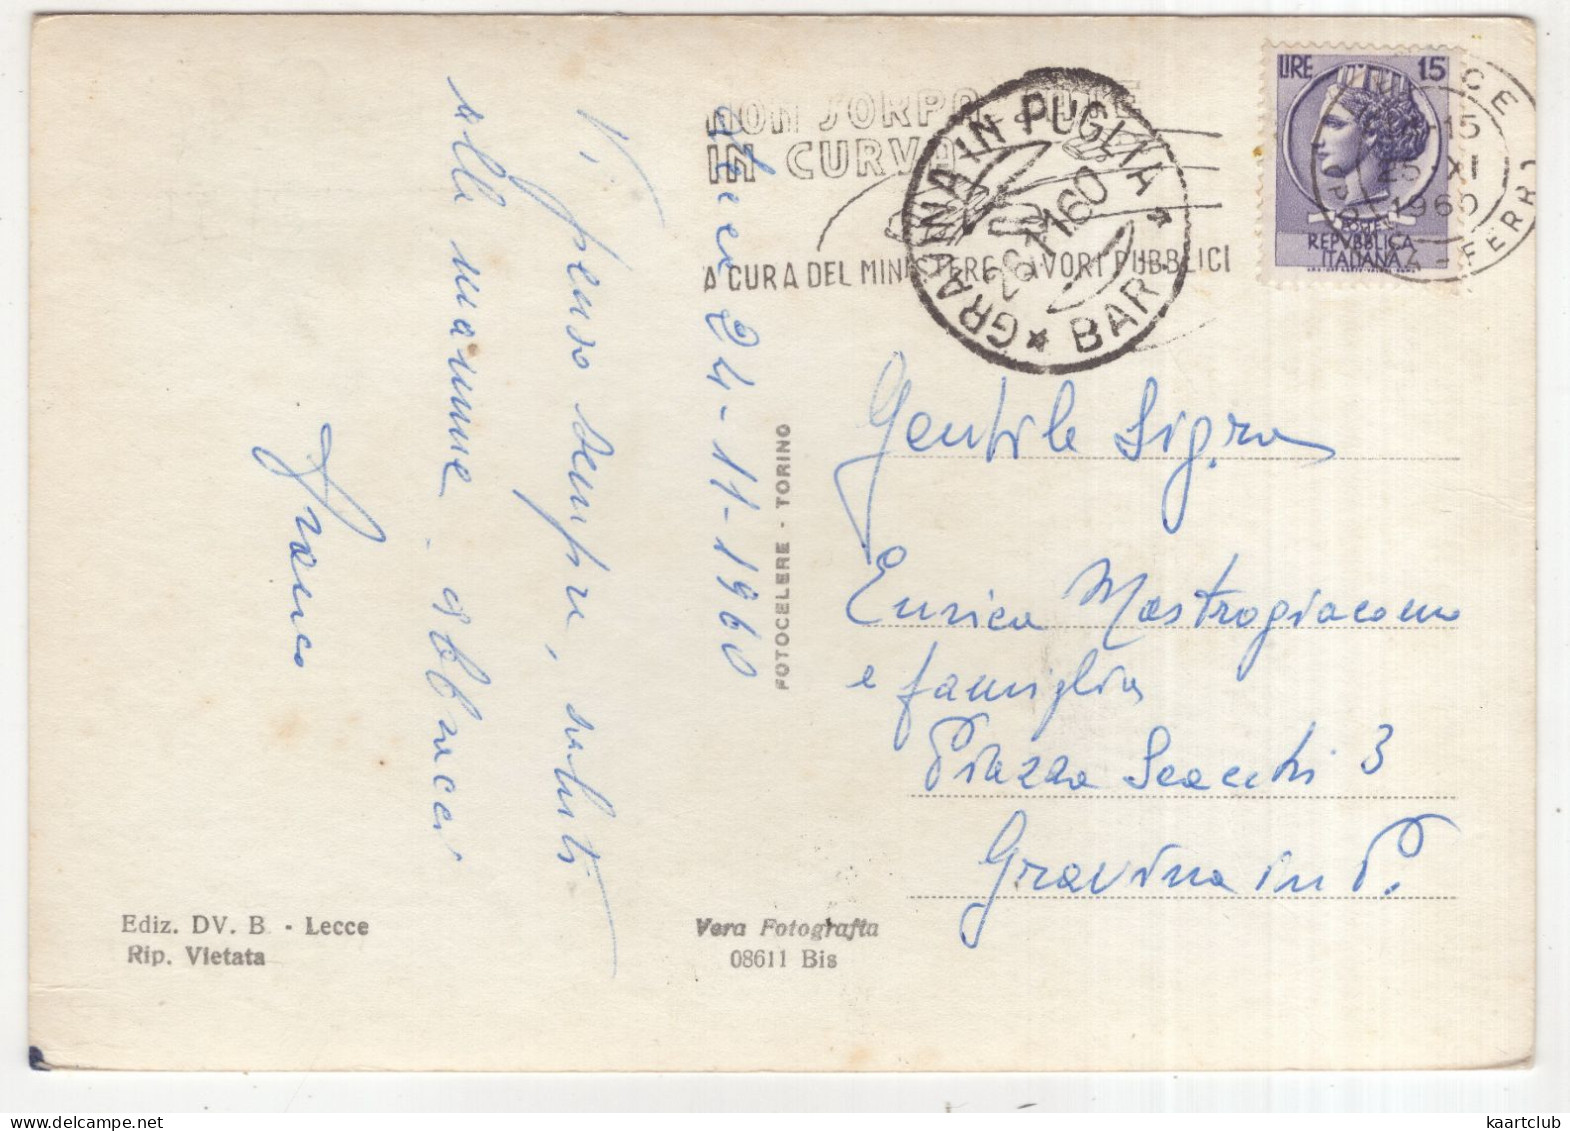 NON SORPASSATE
IN CURVA
A CURA DEL MINISTERE LAVORI PUBBLICI
GRAVINA IN PUGLIA
26.11.60
* BARI *
LIRE 15
REPVBBLICA
ITALIANA
15
25 XI
1960
FERR
24-11-1960
Vi penso sempre, saluti
alle mamme. abbracci
Franco
FOTOCELERE - TORINO
Gentile Sig.ra
Enrica Mastrogiacomo
e famiglia
Piazza Scacchi 3
Gravina in P.
Ediz. DV. B. - Lecce
Rip. Vietata
Vera Fotografia
08611 Bis
kaartclub